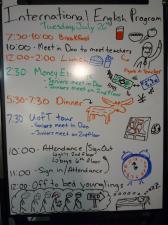 International English Program
Tuesday July 26
7:30-10:00 - Breakfast
10:00 - Meet in Dao to meet teachers
12:00-2:00 Lunch
2:30 Money E
- Seniors meet in Dao
- Juniors meet on 2nd floor
5:30-7:30 Dinner
7:00 UofT tour
- Seniors meet in Dao
- Juniors meet on 2nd floor
10:00 - Attendance/Sign Out
11:00 - Sign in/Attendance
12:00 Off to bed younglings